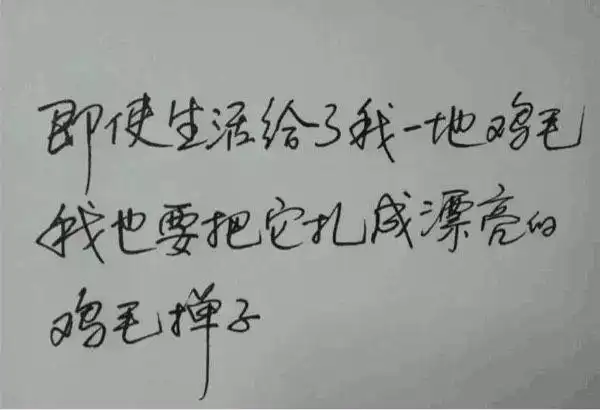 即使生活给了我一地鸡毛
我也要把它扎成漂亮的
鸡毛掸子